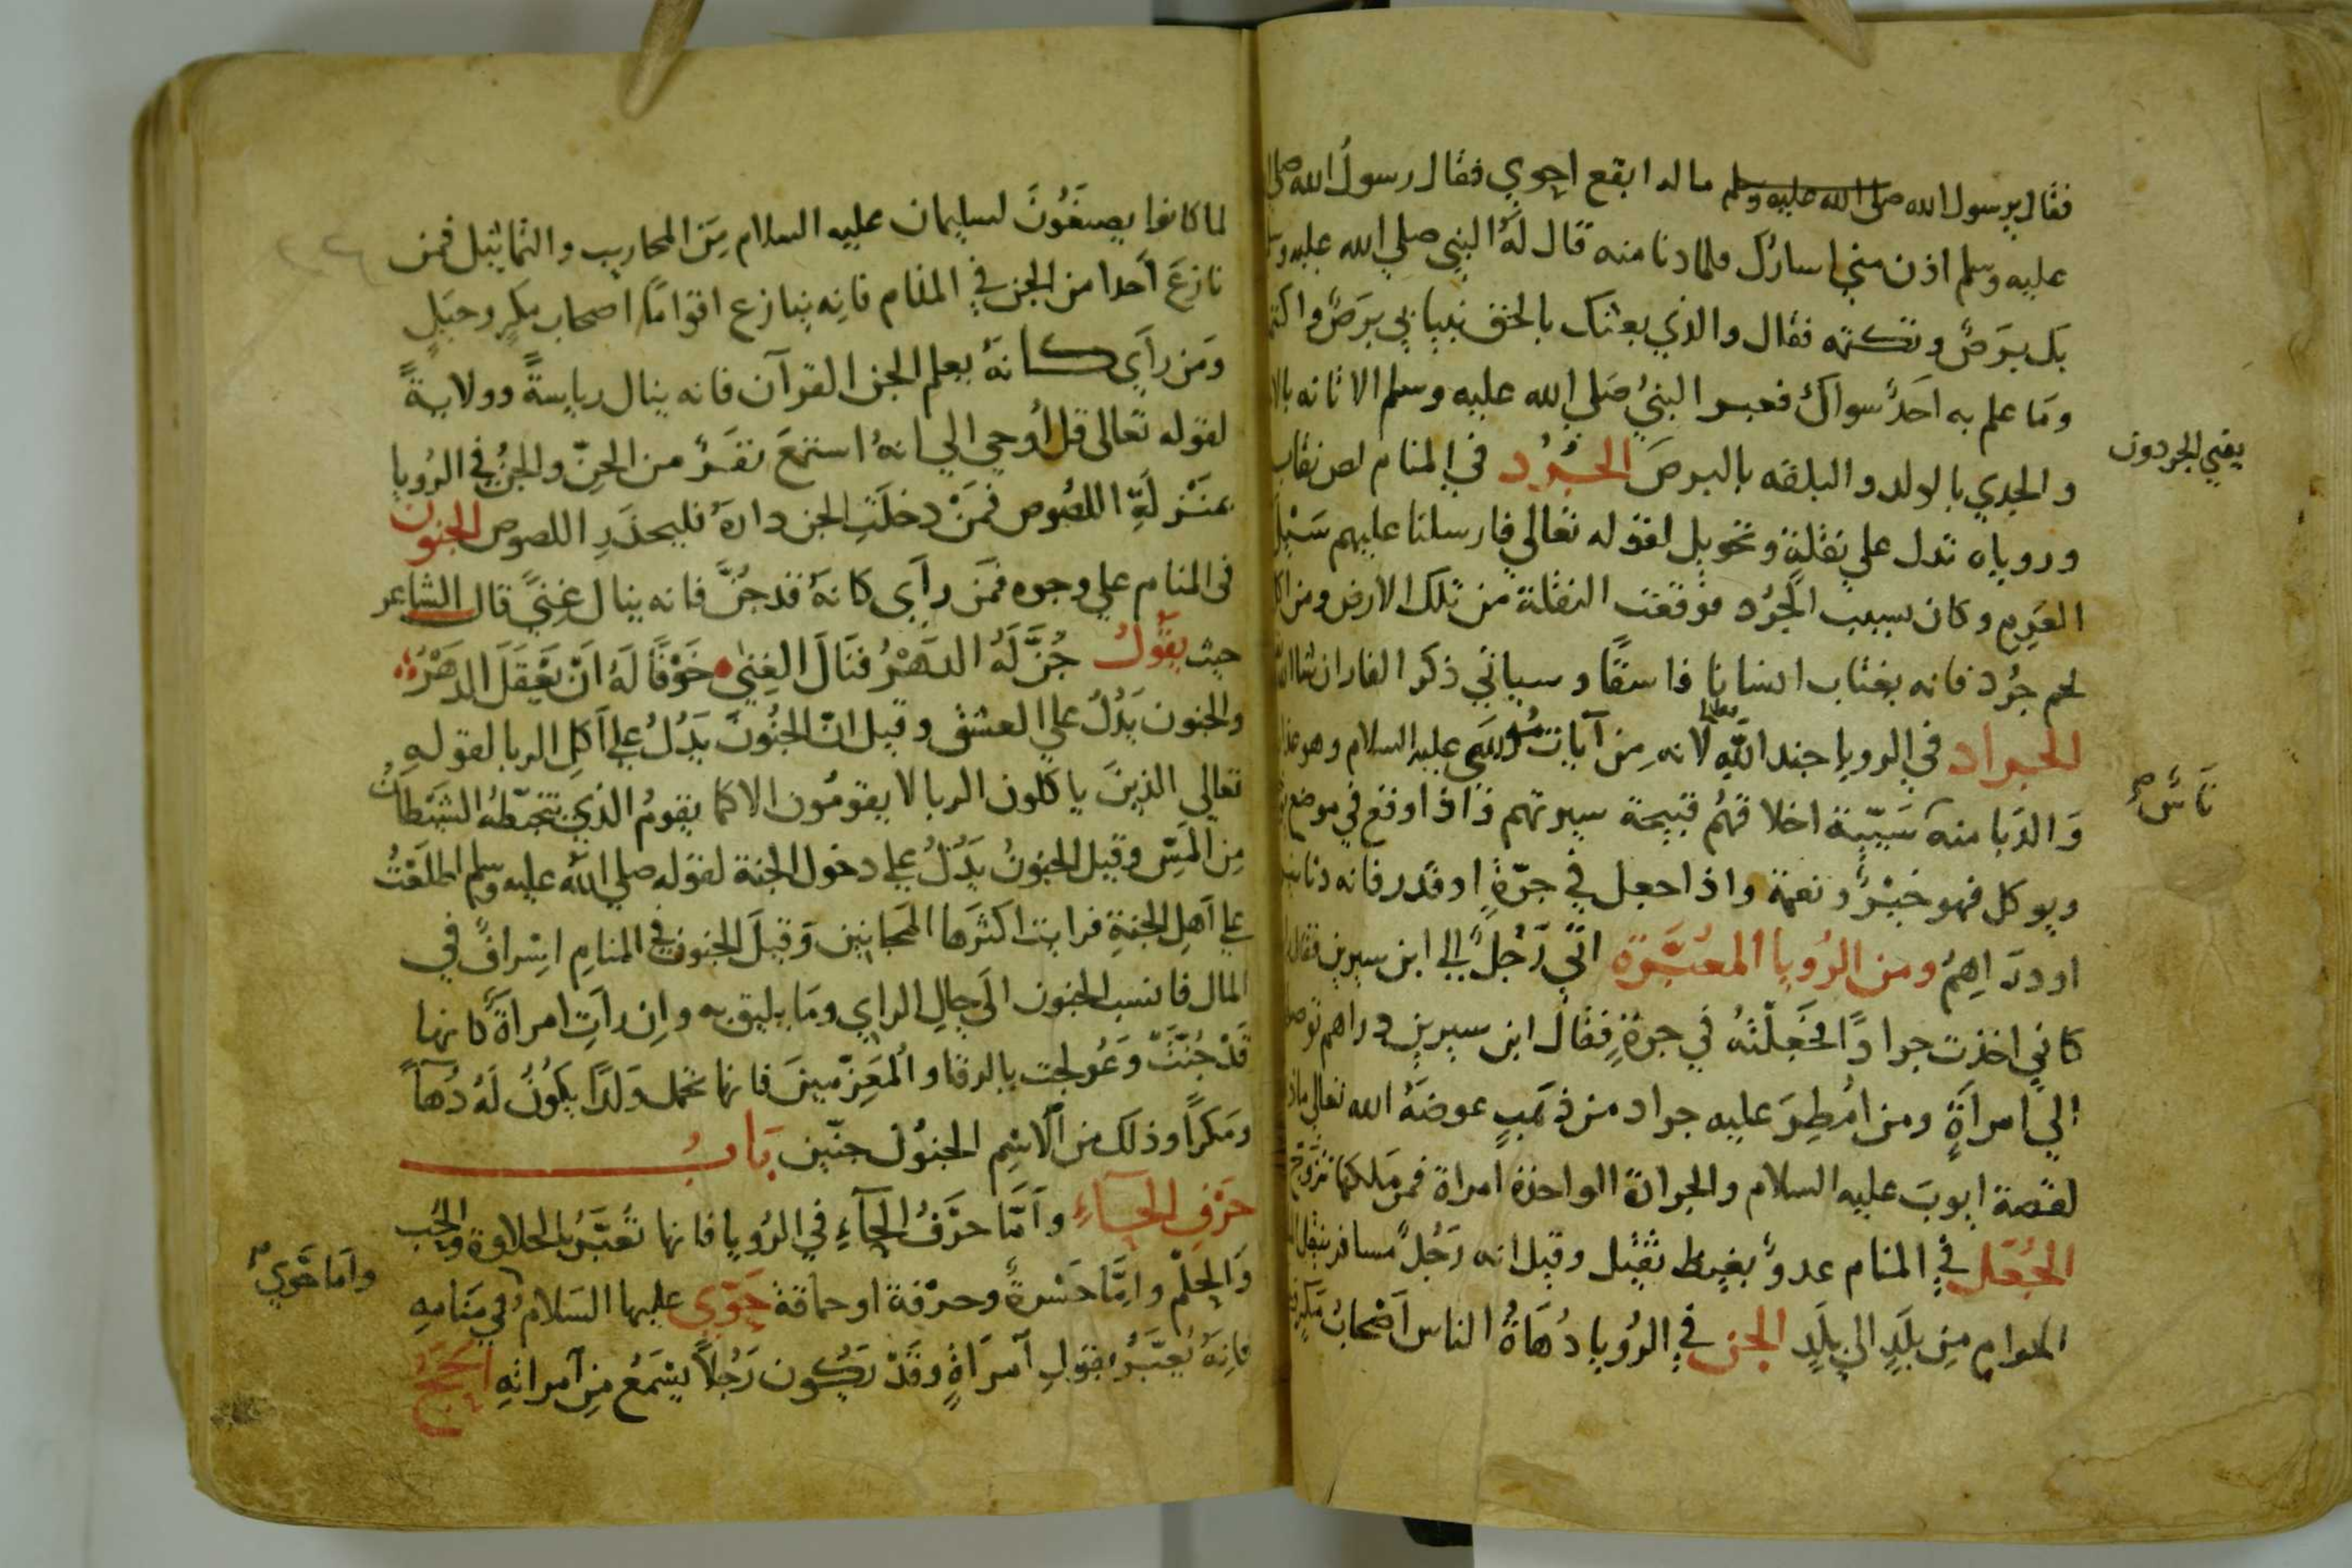 فقال يرسول الله صلى الله عليه وسلم ما له ابقع احوي فقال رسول الله صلى
عليه وسلم اذن مني اسارك فلما دنا منه قال له النبي صلي الله عليه وسلم
بك برص وتكتمه فقال والذي بعثك بالحق نبيا بي برص واكتمه
وما علم به احد سواك فعبر النبي صلي الله عليه وسلم الاتانه
والجدي بالولد والبلقه بالبرص الجرد في المنام لص نقاب
يعني الجردون
وروياه تدل علي نقلة وتحويل لقوله تعالي فارسلنا عليهم سيل
العرم وكان سبب الجرد فوقعت النقلة من تلك الارض ومن اكل
لحم جرد فانه يغتاب انسانا فاسقا وسياتي ذكر الفار ان شا الله
الجراد في الرويا جند الله لانه من آيات موسي عليه السلام وهو عذاب
والدبا منه سيية اخلاقهم قبيحة سيرتهم فاذا وقع في موضع
ناس
ويوكل فهو خير ونعمة واذا جعل في جرة او قدر فانه دنانير
او دراهم ومن الرويا المعبرة اتي رجل الي ابن سيرين فقال
كاني اخذت جرادا فجعلته في جرة فقال ابن سيرين دراهم توصل
الي امرأة ومن امطر عليه جراد من ذهب عوضه الله تعالي ماذ
لقصة ايوب عليه السلام والجرادة الواحدة امراة فمن ملكها تزوج
الجعل في المنام عدو بغيط ثقيل وقيل انه رجل مسافر ينقل
الحرام من بلد الي بلد الجن في الرويا دهاة الناس اصحاب مكر
لما كانوا يصنعون لسليمان عليه السلام من المحاريب والتماثيل فمن
نازع احدا من الجن في المنام فانه ينازع اقواما اصحاب مكر وحيل
ومن رأي كانه يعلم الجن القرآن فانه ينال رياسة وولاية
لقوله تعالي قل أوحي الي انه استمع نفر من الجن والجن في الرويا
بمنزلة اللصوص فمن دخلت الجن داره فليحذر اللصوص الجنون
في المنام علي وجوه فمن رأي كانه قد جن فانه ينال غني قال الشاعر
حيث يقول جن له الدهر فنال الغني خوفا له ان يعقل الدهر
والجنون يدل علي العشق وقيل ان الجنون يدل علي آكل الربا لقوله
تعالي الذين ياكلون الربا لا يقومون الا كما يقوم الذي يتخبطه الشيطان
من المس وقيل الجنون يدل علي دخول الجنة لقوله صلي الله عليه وسلم اطلعت
علي اهل الجنة فرايت اكثرها المجانين وقيل الجنون في المنام اسراف في
المال فانسب الجنون الي حال الراي وما يليق به وان رات امرأة كانها
قد جنت وعولجت بالرقا والمعزمين فانها تحمل ولدا يكون له دهآ
ومكرا وذلك من الاسم الجنون جنين باب
حرف الحآء وأما حرف الحآء في الرويا فانها تعبر بالحلاوة والحب
والحلم واما حسرة وحرقة او حماقة حوي عليها السلام في منامه
واما حوي
فانه يعبر بقول امرأة وقد يكون رجلا يسمع من امراته الحج